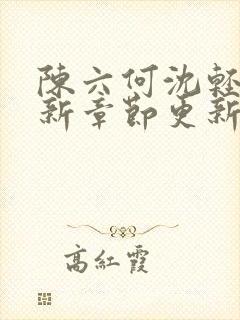 陳六何沈輕
新章節更新
高紅霞